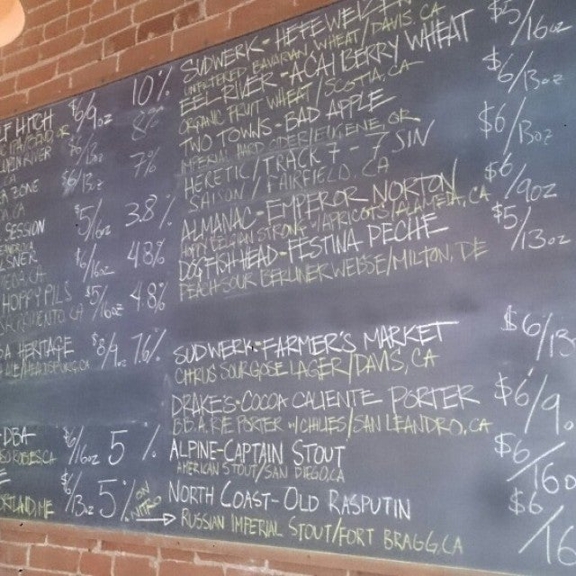 F HITCH $6/9oz 10%
8%
RIVER 7%
ZONE $6/13oz
CA
SESSION $5/16oz 3.8%
LSNER $6/16oz 4.8%
CA
HOPPY PILS $5/16oz 4.8%
SACRAMENTO CA
HERITAGE $8/9oz 7.6%
ALE/HEALDSBURG, CA
DBA $6/16oz 5%
ROBLES, CA
$6/13oz 5% ON NITRO
PORTLAND, ME
SUDWERK-HEFEWEIZEN $5/16oz
UNFILTERED, BAVARIAN, WHEAT/DAVIS, CA
EEL RIVER-ACAI BERRY WHEAT $6/13oz
ORGANIC FRUIT WHEAT/SCOTIA, CA
TWO TOWNS-BAD APPLE $6/13oz
IMPERIAL HARD CIDER/EUGENE, OR
HERETIC/TRACK 7-7 SIN $6/9oz
SAISON/FAIRFIELD, CA
ALMANAC-EMPEROR NORTON $5/13oz
HOPPY BELGIAN STRONG W/APRICOTS/ALAMEDA, CA
DOGFISH HEAD-FESTINA PECHE
PEACH SOUR BERLINER WEISSE/MILTON, DE
SUDWERK-FARMER'S MARKET $6/13
CITRUS SOUR GOSE LAGER/DAVIS, CA
DRAKE'S-COCOA CALIENTE PORTER $6/9.
B.B.A. RYE PORTER W/CHILIES/SAN LEANDRO, CA
ALPINE-CAPTAIN STOUT $6/16o
AMERICAN STOUT/SAN DIEGO, CA
NORTH COAST-OLD RASPUTIN $6/16
RUSSIAN IMPERIAL STOUT/FORT BRAGG, CA